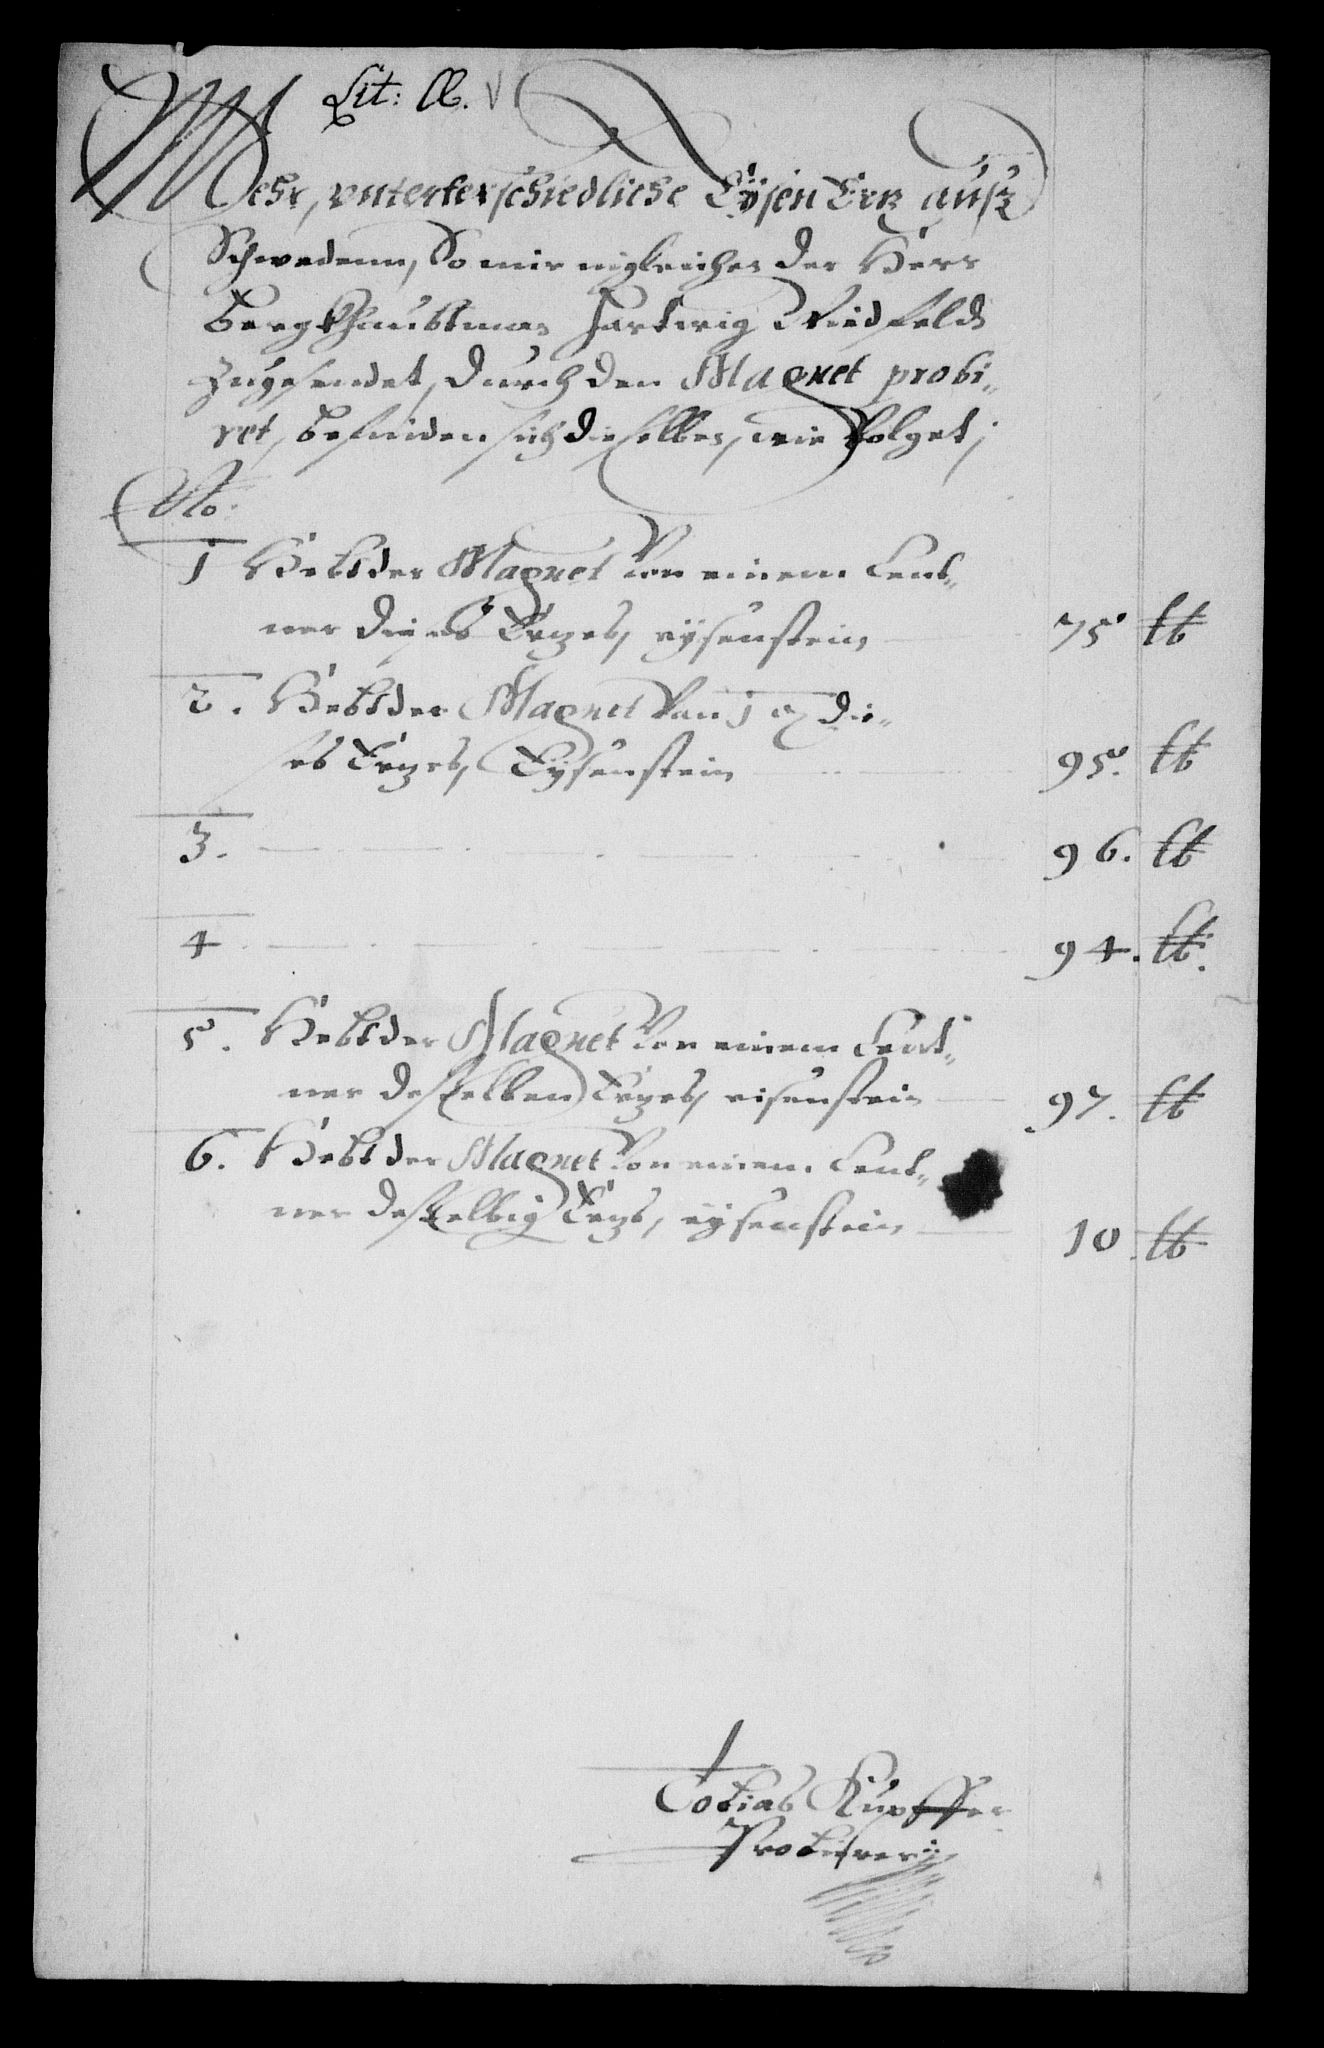 Lit: Æ.
Mehr, vnterterschiedliche Eÿsen Ertz außz
Schwedenn, So mir nigleichen der Herr
Bergkhaubtman Hartwig Wiedfeldt
zugesendet, durch den Magnet probi-
ret, befinden sich dieselben, wie volget;
No:
1 Hebt der Magnet von einem Cent-
ner dieses Ertzes, eÿsenstein 75 lb
2. Hebt der Magnet von 1 die-
ses Ertzes, Eÿsenstein 95. lb
3. 96. lb
4 94. lb.
5. Hebt der Magnet von einem Cent-
ner desselben Ertzes, eisenstein 97. lb
6. Hebt der Magnet von einem Cent-
ner desselbig Ertzs, eÿsenstein 10 lb
Tobias Kupffer
Probierer